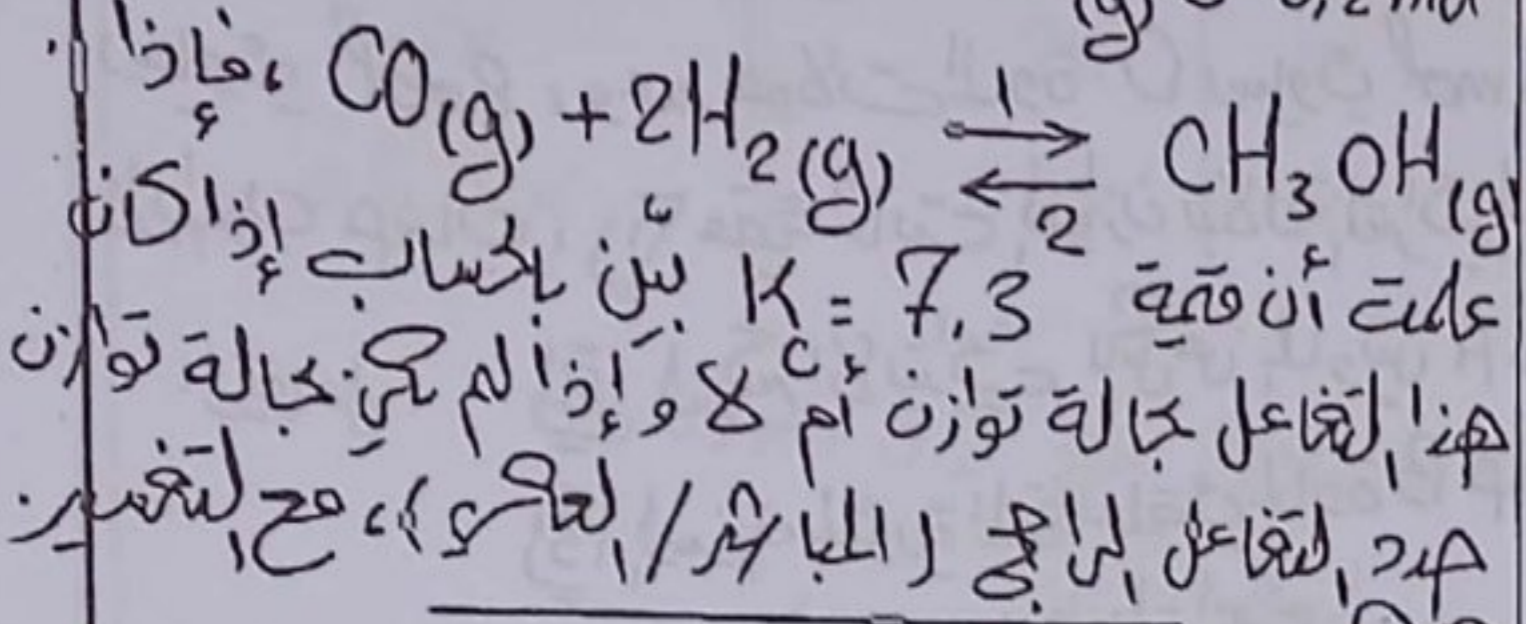 (g) 0,2 mol
CO(g) + 2H2(g) ⇌ CH3OH(g) ، فإذا
1 2
علمت أن قيمة K = 7,3 بيّن بالحساب إذا كان
هذا التفاعل بحالة توازن أم لا وإذا لم يكن بحالة توازن
حدد التفاعل الراجح (المباشر/العكسي)، مع التفسير.